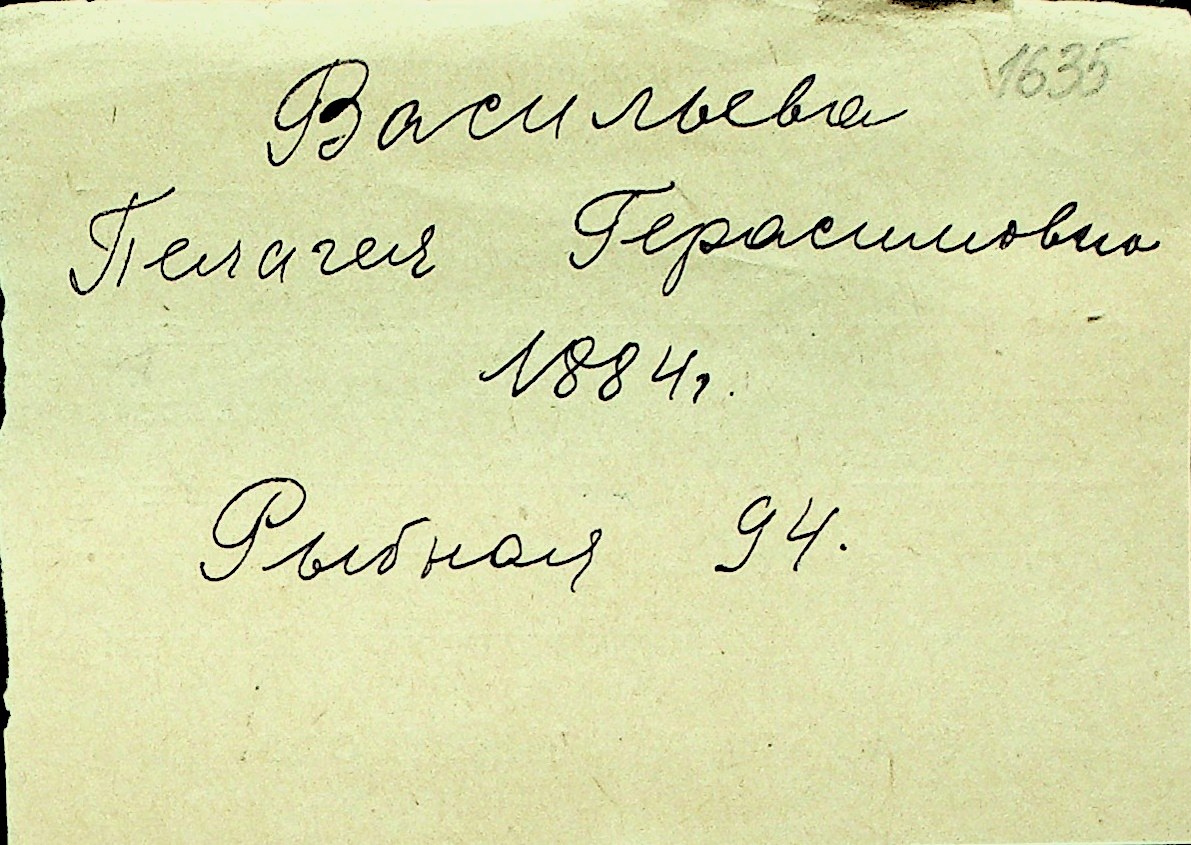 1635
Васильева
Пелагея Герасимовна
1884г.
Рыбная 94.